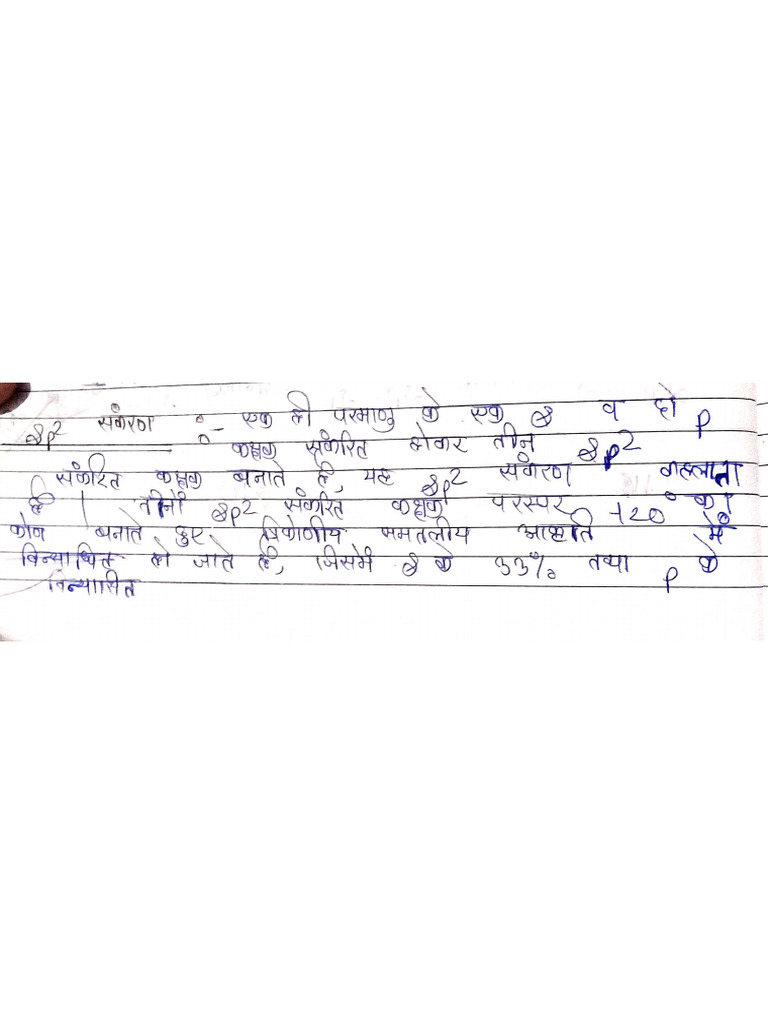 sp² संकरण :- एक ही परमाणु के एक s व दो p
कक्षक संकरित होकर तीन sp²
संकरित कक्षक बनाते है, यह sp² संकरण कहलाता
है | तीनों sp² संकरित कक्षक परस्पर 120° का
कोण बनाते हुए त्रिकोणीय समतलीय आकृति में
विन्याथित हो जाते है, जिसमें s के 33% तथा p के
विन्यासित